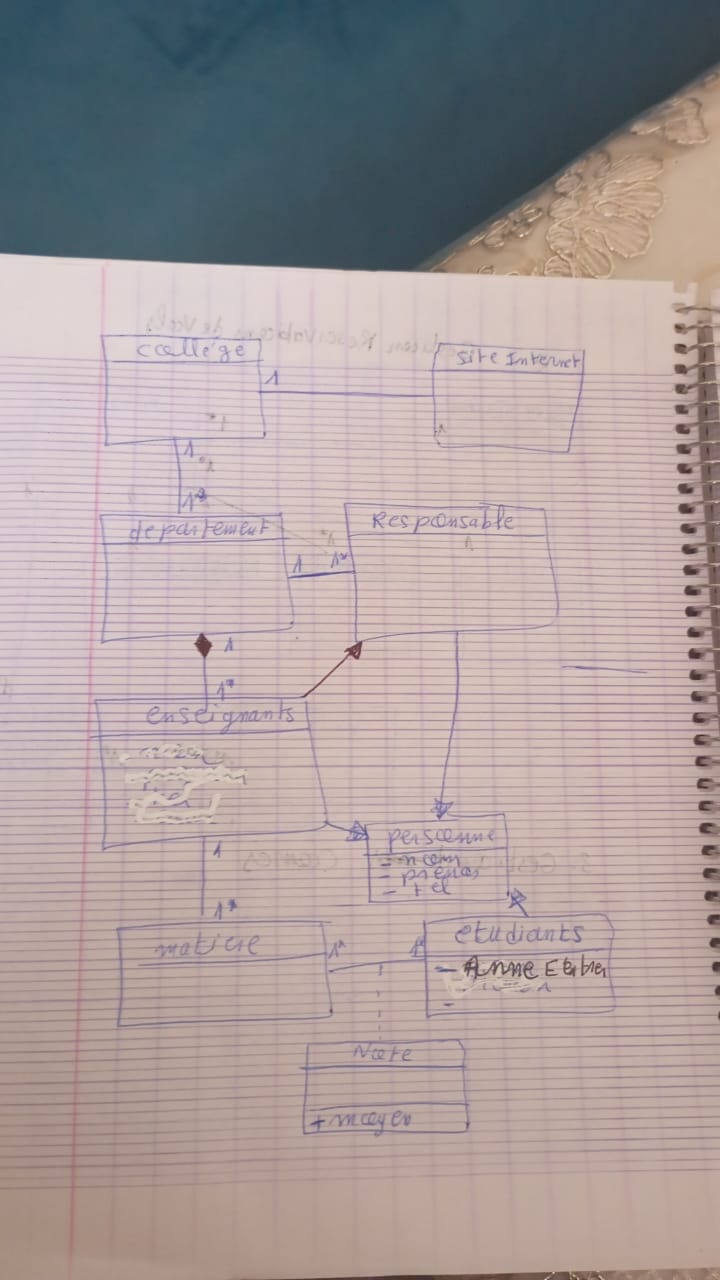 collége
site Internet
1
1
1*
1
1°
1*
departement
Responsable
1
1*
1
1*
enseignants
personne
- nom
- prenom
- tel
1
1*
matiere
1*
1*
etudiants
- Anne
-
Note
+ moyen